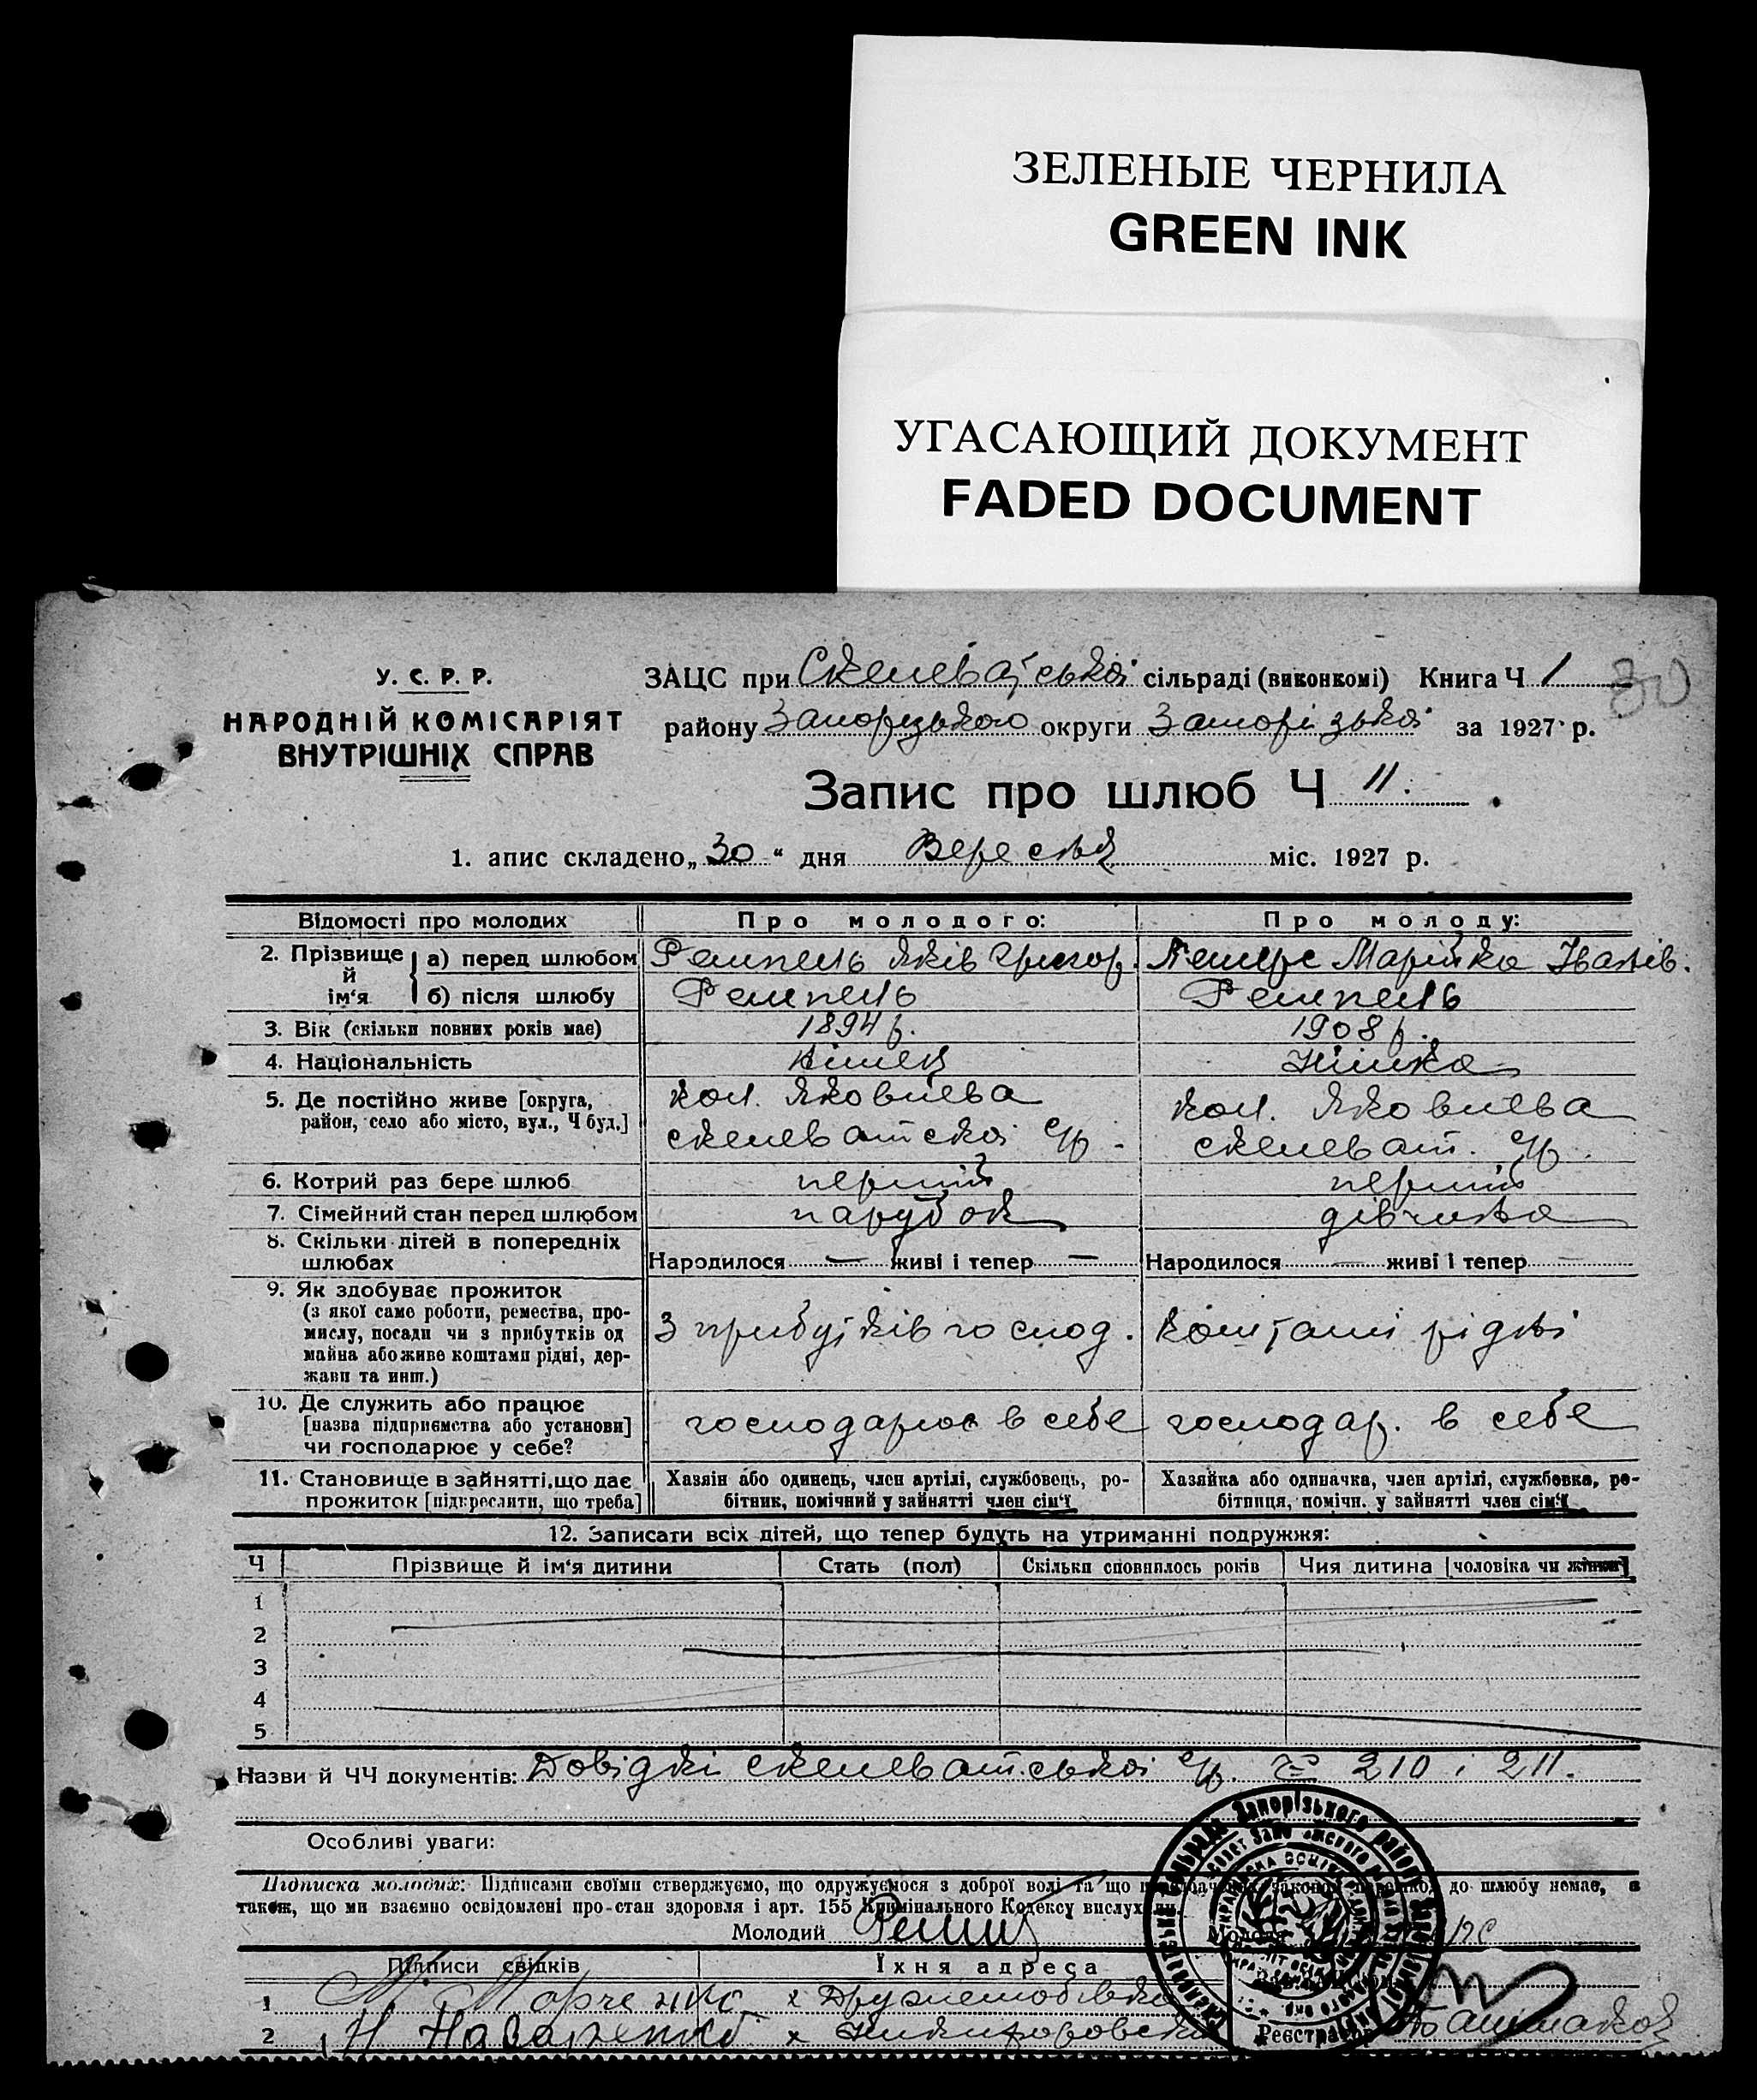 ЗЕЛЕНЫЕ ЧЕРНИЛА
GREEN INK
УГАСАЮЩИЙ ДОКУМЕНТ
FADED DOCUMENT
У. С. Р. Р.
НАРОДНІЙ КОМІСАРІЯТ
ВНУТРІШНІХ СПРАВ
ЗАЦС при Скелеватської сільраді (виконкомі) Книга Ч 1 30
району Запорізького округи Запорізької за 1927 р.
Запис про шлюб Ч 11.
1. апис складено „30“ дня Вересня міс. 1927 р.
Відомості про молодих Про молодого: Про молоду:
2. Прізвище й ім‘я а) перед шлюбом Ремпель Яків Григор. Марійка Іванів.
б) після шлюбу Ремпель Ремпель
3. Вік (скільки повних років має) 1894 р. 1908 р.
4. Національність Німец Німка
5. Де постійно живе [округа, район, село або місто, вул., Ч буд.] кол. Яковлева кол. Яковлева
скелеватскої с/р. скелеват. с/р.
6. Котрий раз бере шлюб перший перший
7. Сімейний стан перед шлюбом парубок дівчина
8. Скільки дітей в попередніх шлюбах Народилося — живі і тепер — Народилося — живі і тепер —
9. Як здобуває прожиток
(з якої само роботи, ремества, про-
мислу, посади чи з прибутків од
майна або живе коштами рідні, дер-
жави та инш.) З прибутків господ. Коштами рідні
10. Де служить або працює
[назва підприємства або установи]
чи господарює у себе? господарює в себе господар. в себе
11. Становище в зайнятті, що дає
прожиток [підкреслити, що треба]
Хазяін або одинець, член артілі, службовець, ро-
бітник, помічний у зайнятті член сім‘ї
Хазяйка або одиначка, член артілі, службовка, ро-
бітниця, помічн. у зайнятті член сім‘ї
12. Записати всіх дітей, що тепер будуть на утриманні подружжя:
Ч Прізвище й ім‘я дитини Стать (пол) Скільки сповнилось років Чия дитина [чоловіка чи жінки]
1
2
3
4
5
Назви й ЧЧ документів: Довідки скелеватської с/р. 210 і 211.
Особливі уваги:
Підписка молодих: Підписами своїми стверджуємо, що одружуємося з доброї волі та що до шлюбу немає, а
також, що ми взаємно освідомлені про-стан здоровля і арт. 155 Кримінального Кодексу
Молодий Молода
Підписи свідків Їхня адреса
1 М. Марченко х
2 Н Назаренко х
Реєстратор